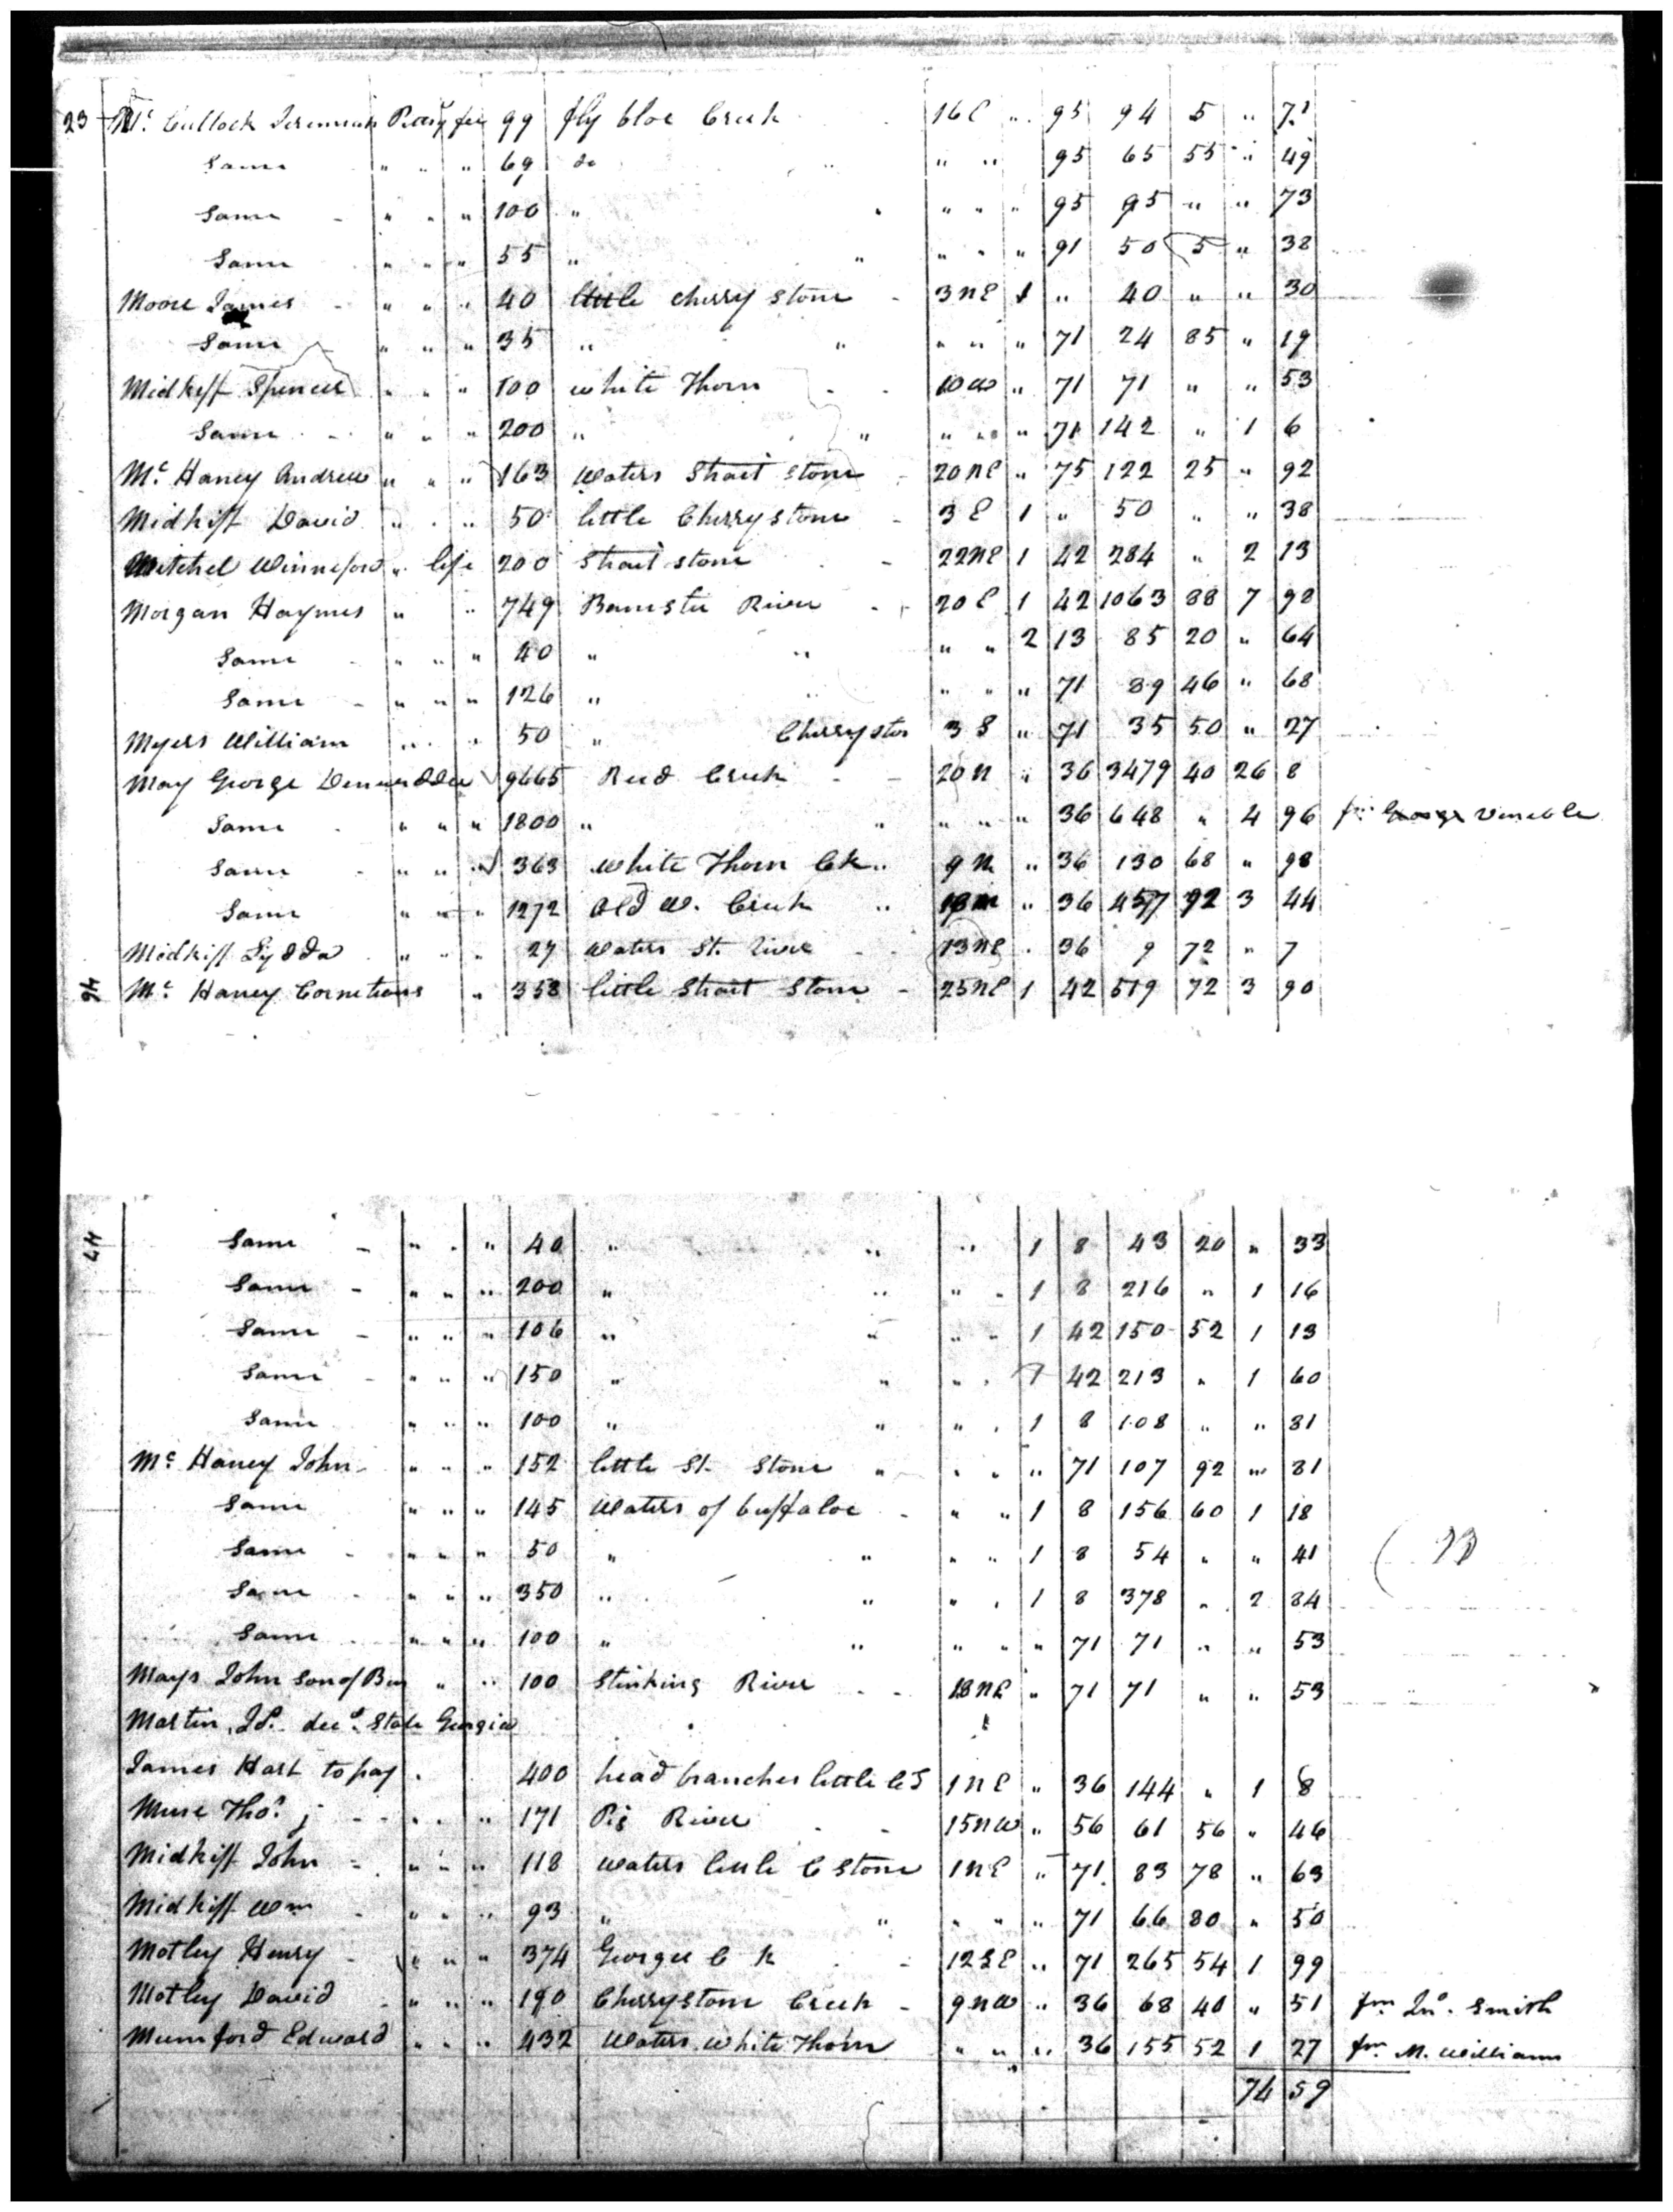 23 Mc Cullock Jeremiah Pay fee 99 fly bloe Creek 16 E " 95 94 5 " 71
Same " " " 69 do " " " 95 65 55 " 49
Same " " " 100 " " " " 95 95 " " 73
Same " " " 55 " " " " " 91 50 5 " 38
Moore James " " " 40 little cherry stone 3 NE 1 " 40 " " 30
Same " " " 35 " " " " " 71 24 85 " 19
Midkiff Spencer " " " 100 white Thorn 10 W " 71 71 " " 53
Same " " " 200 " " " " " 71 142 " 1 6
Mc Haney Andrew " " " 163 Waters Strait stone 20 NE " 75 122 25 " 92
Midkiff David " " " 50 little Cherry stone 3 E 1 " 50 " " 38
Mitchel Winneford " life 200 Strait stone 22 NE 1 42 284 " 2 13
Morgan Haymes " " 749 Banister River 20 E 1 42 1063 88 7 98
Same " " " 40 " " " " 2 13 85 20 " 64
Same " " " 126 " " " " " 71 89 46 " 68
Myers William " " 50 " Cherry ston 3 S " 71 35 50 " 27
May George 9665 Reed Creek 20 N " 36 3479 40 26 8
Same " " " 1800 " " " " " 36 648 " 4 96 fm George Venable
Same " " " 363 White Thorn Ck " 9 N " 36 130 68 " 98
Same " " " 1272 Old W. Creek " " 36 457 92 3 44
Midkiff Lydda " " " 27 Waters St. River 13 NE " 36 9 72 " 7
46 Mc Haney Cornelious " 358 little Strait Stone 25 NE 1 42 519 72 3 90
47 Same " " " 40 " " " 1 8 43 20 " 33
Same " " " 200 " " " " 1 8 216 " 1 16
Same " " " 106 " " " " 1 42 150 52 1 13
Same " " " 150 " " " " 1 42 213 " 1 60
Same " " " 100 " " " " 1 8 108 " " 81
Mc Haney John " " " 152 little St. Stone " " " " 71 107 92 " 81
Same " " " 145 Waters of buffaloe " " 1 8 156 60 1 18
Same " " " 50 " " " " 1 8 54 " " 41
Same " " " 350 " " " " 1 8 378 " 2 84
Same " " " 100 " " " " " 71 71 " " 53
Mays John son of Ben " " 100 Stinking River 18 NE " 71 71 " " 53
Martin, decd. State Georgia
James Hart to pay 400 head branches little C S 1 NE " 36 144 " 1 8
Muse Thos. j " " 171 Pig River 15 NW " 56 61 56 " 46
Midkiff John " " " 118 Waters little C Stone 1 NE " 71 83 78 " 63
Midkiff Wm " " " 93 " " " " " 71 66 80 " 50
Motley Henry " " " 374 Georges C k 12 SE " 71 265 54 1 99
Motley David " " " 190 Cherrystone Creek 9 NW " 36 68 40 " 51 fm Jno. Smith
Mumford Edward " " " 432 Waters White Thorn " " " 36 155 52 1 27 fm M. Williams
74 59